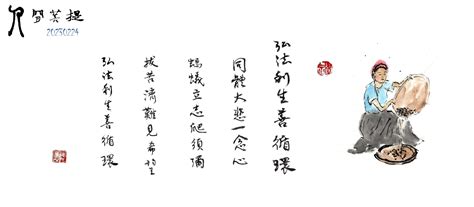 人間菩提
20230224
弘法利生善循環
同體大悲一念心
螞蟻立志爬須彌
拔苦濟難見希望
弘法利生善循環